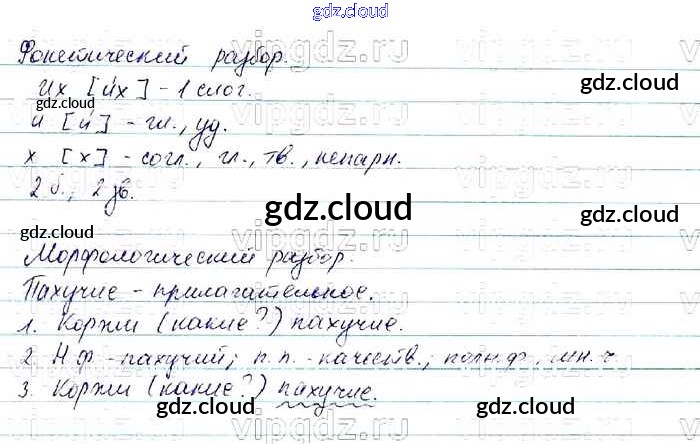 gdz.cloud
Фонетический разбор.
Их [и́х] - 1 слог.
и [и́] - гл., уд.
х [х] - согл., гл., тв., непарн.
2 б., 2 зв.
Морфологический разбор.
Пахучие - прилагательное.
1. Коржи (какие?) пахучие.
2. Н.ф. - пахучий; п.п. - качеств.; полн.ф., мн.ч.
3. Коржи (какие?) пахучие.
vipgdz.ru
gdz.cloud
gdz.cloud
gdz.cloud
gdz.cloud
gdz.cloud
gdz.cloud